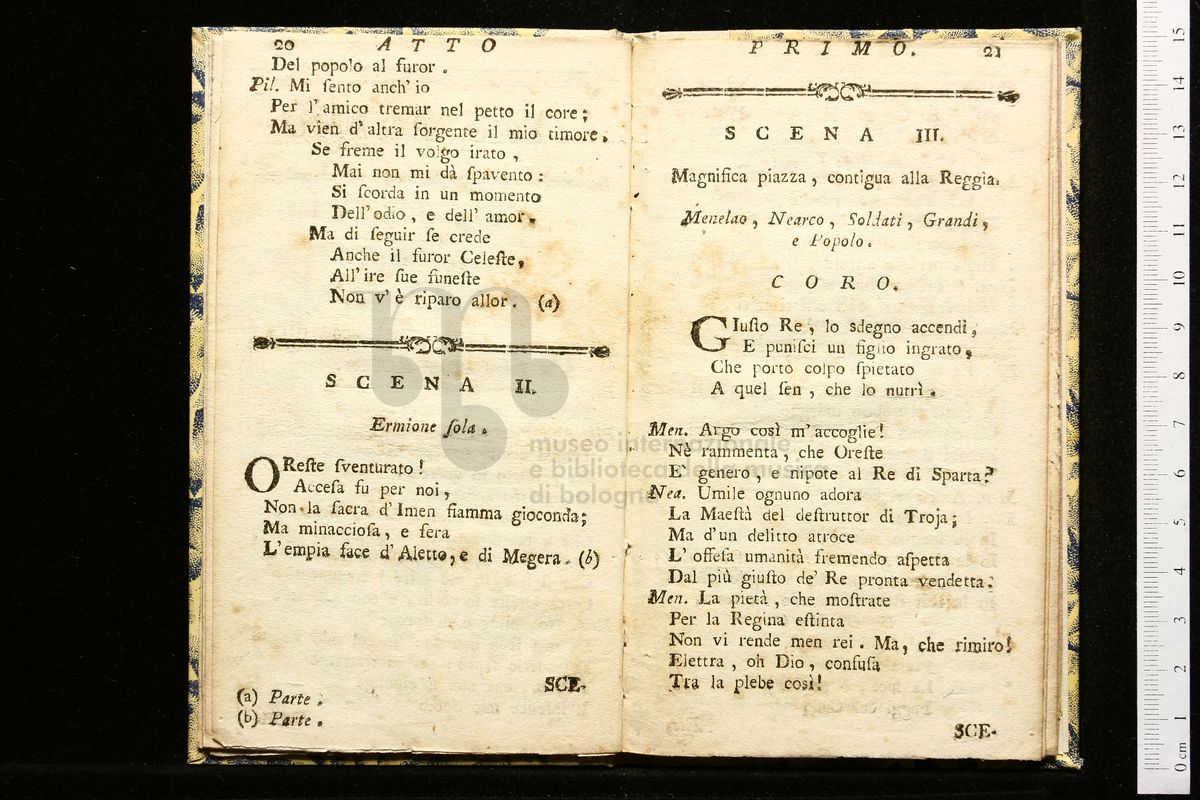 20 ATTO
Del popolo al furor.
Pil. Mi ſento anch' io
Per l' amico tremar nel petto il core;
Ma vien d' altra ſorgente il mio timore.
Se freme il volgo irato,
Mai non mi dà ſpavento:
Si ſcorda in un momento
Dell' odio, e dell' amor.
Ma di ſeguir ſe crede
Anche il furor Celeſte,
All' ire ſue funeſte
Non v' è riparo allor. (a)
SCENA II.
Ermione ſola.
OReſte ſventurato!
Acceſa fu per noi,
Non la ſacra d' Imen fiamma gioconda;
Ma minaccioſa, e fera
L' empia face d' Aletto, e di Megera. (b)
SCE-
(a) Parte.
(b) Parte.
PRIMO. 21
SCENA III.
Magnifica piazza, contigua alla Reggia.
Menelao, Nearco, Soldati, Grandi,
e Popolo.
CORO.
GIuſto Re, lo sdegno accendi,
E puniſci un figlio ingrato,
Che porto colpo ſpietato
A quel ſen, che lo nutrì.
Men. Argo così m' accoglie!
Nè rammenta, che Oreſte
E' genero, e nipote al Re di Sparta?
Nea. Umile ognuno adora
La Maeſtà del deſtruttor di Troja;
Ma d' un delitto atroce
L' offeſa umanità fremendo aſpetta
Dal più giuſto de' Re pronta vendetta.
Men. La pietà, che moſtrate
Per la Regina eſtinta
Non vi rende men rei. Ma, che rimiro!
Elettra, oh Dio, confuſa
Tra la plebe così!
SCE-
museo internazionale
e biblioteca della musica
di bologna
0 cm 1 2 3 4 5 6 7 8 9 10 11 12 13 14 15